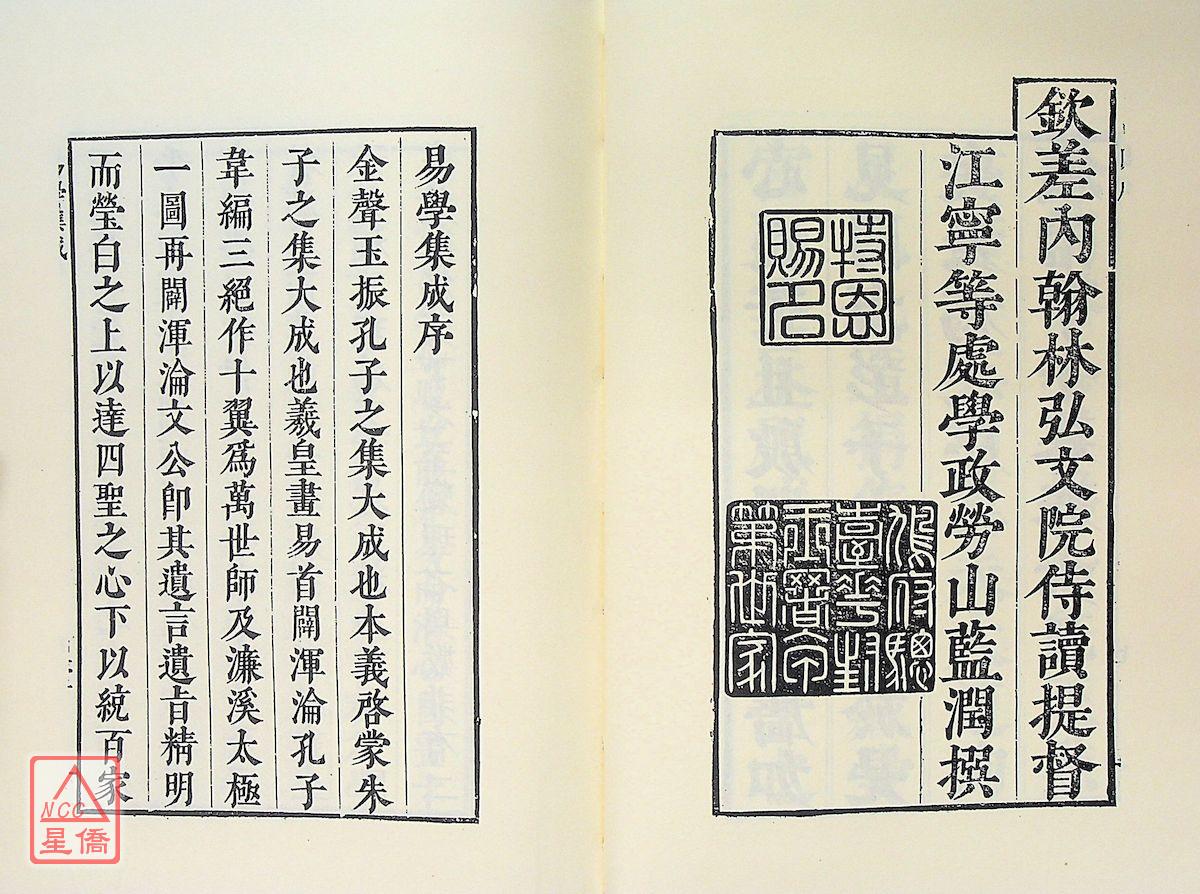 欽差內翰林弘文院侍讀提督
江寧等處學政勞山藍潤撰
特恩
賜名
易學集成序
金聲玉振孔子之集大成也本義啓蒙朱
子之集大成也羲皇畫易首闢渾淪孔子
韋編三絕作十翼爲萬世師及濂溪太極
一圖再闢渾淪文公卽其遺言遺旨精明
而瑩白之上以達四聖之心下以統百家
易學集成
NCC
星僑